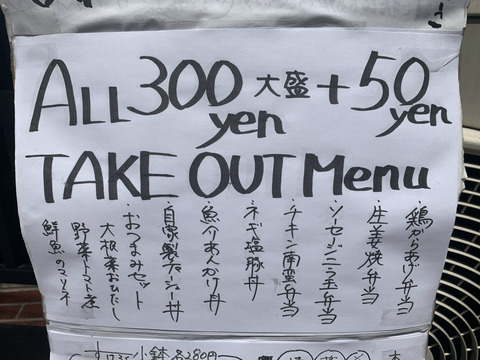 ALL 300 yen 大盛 + 50 yen
TAKE OUT Menu
・鶏からあげ弁当
・生姜焼弁当
・ソーセージニラ玉弁当
・チキン南蛮弁当
・ネギ塩豚丼
・魚介あんかけ丼
・自家製チャーシュー丼
・おつまみセット
大根菜おひたし
野菜トマト煮
鮮魚のマリネ
小鉢各280円